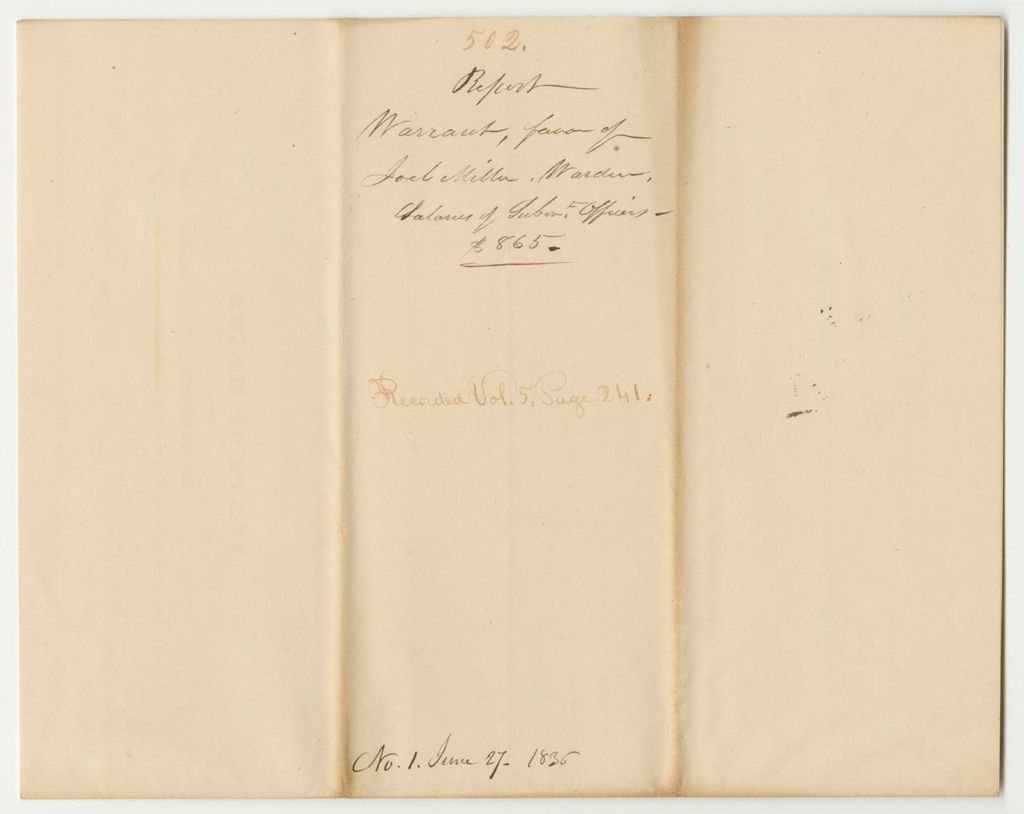 502.
Report
Warrant, favor of
Joel Miller. Warden,
Salaries of Subor.t Officers -
$865.
Recorded Vol. 5. Page 241.
No. 1. June 27. 1836